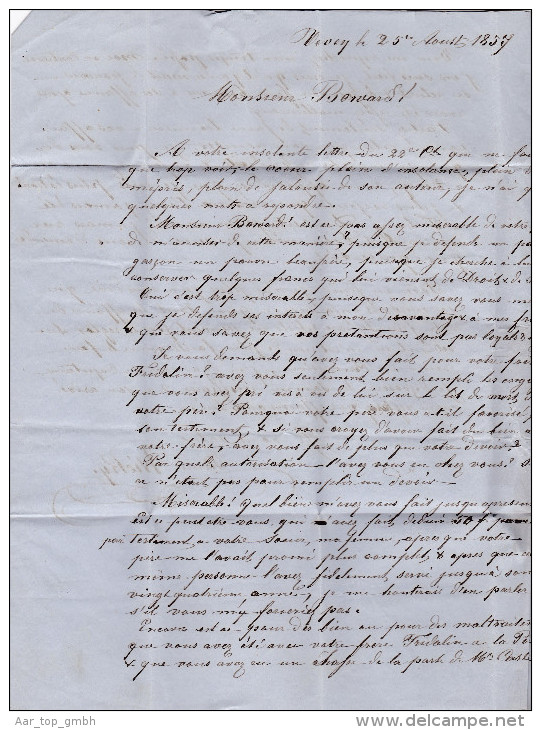 Vevey le 25 Aout 1857
Monsieur Boward!
A votre insolente lettre du 22 que ne fai
que trop voir le coeur plein d'insolence, plein
mépris, plein de jalousie de son auteur, je n'ai q
quelques mots a repondre.
Monsieur Boward! est ce pas assez miserable de votre
de m'accuser de cette maniere, puisque je defends un pau
garçon un pauvre beaupere, puisque je cherche à lui
conserver quelques francs qui lui viennent de Droit & de
Oui c'est trop miserable, puisque vous savez vous me
que je defends ses interets a mon desavantage & a mes fr
& que vous savez que vos pretentions sont peu loyales
Je vous demande qu'avez vous fait pour votre frère
Fridolin? avez vous seulement bien rempli les enga
que vous avez pris vis a vis de lui sur le lit de mort d
votre père? Pourquoi votre père vous a t'il favorisé
son testament, & si vous croyez d'avoir fait du bien a
votre frère, avez vous fait de plus que votre devoir?
Par quelle autorisation l'avez vous eu chez vous?
ce n'etait pas pour remplir un devoir.
Miserable! Quel bien m'avez vous fait jusqu'apresent
est ce peut etre vous qui avez fait, de 50 f. par
par testament, a votre soeur, ma femme, apres que votre
père me l'avait promi plus complet, & apres que cet
même personne l'avez fidelement servi jusqu'à son
vingtquatrième année, je me hontrais d'en parler
s'il vous my forceriez pas.
Encore est ce pour des bien ou pour des maltraite
que vous avez été avec votre frere Fridolin a la
& que vous avez eu un de la part de Mr
Aar_top_gmbh
www.delcampe.net